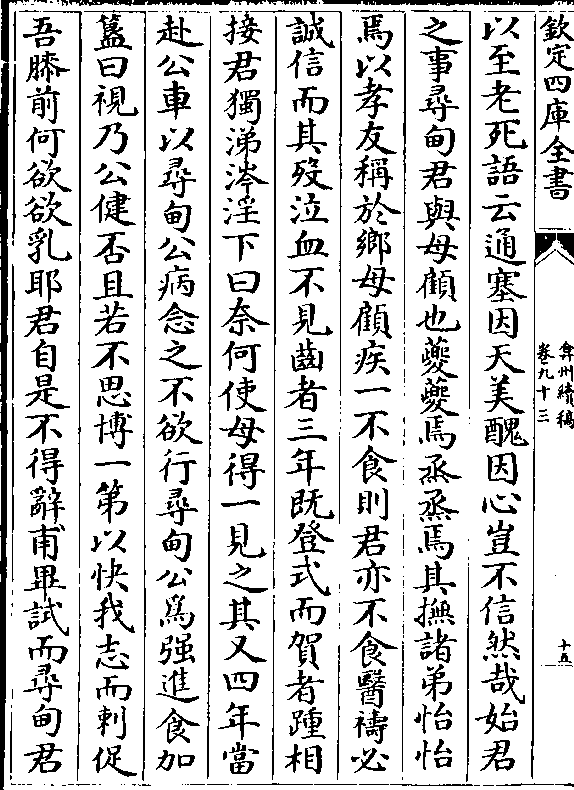 欽定四庫全書
弇州續稿
卷九十三
十五
以至老死語云通塞因天美醜因心豈不信然哉始君
之事尋甸君與母顧也夔夔焉烝烝焉其撫諸弟怡怡
焉以孝友稱於鄉母顧疾一不食則君亦不食醫禱必
誠信而其歿泣血不見齒者三年既登式而賀者踵相
接君獨涕涔淫下曰奈何使母得一見之其又四年當
赴公車以尋甸公病念之不欲行尋甸公為强進食加
簋曰視乃公健否且若不思博一第以快我志而刺促
吾膝前何欲欲乳耶君自是不得辭甫畢試而尋甸君